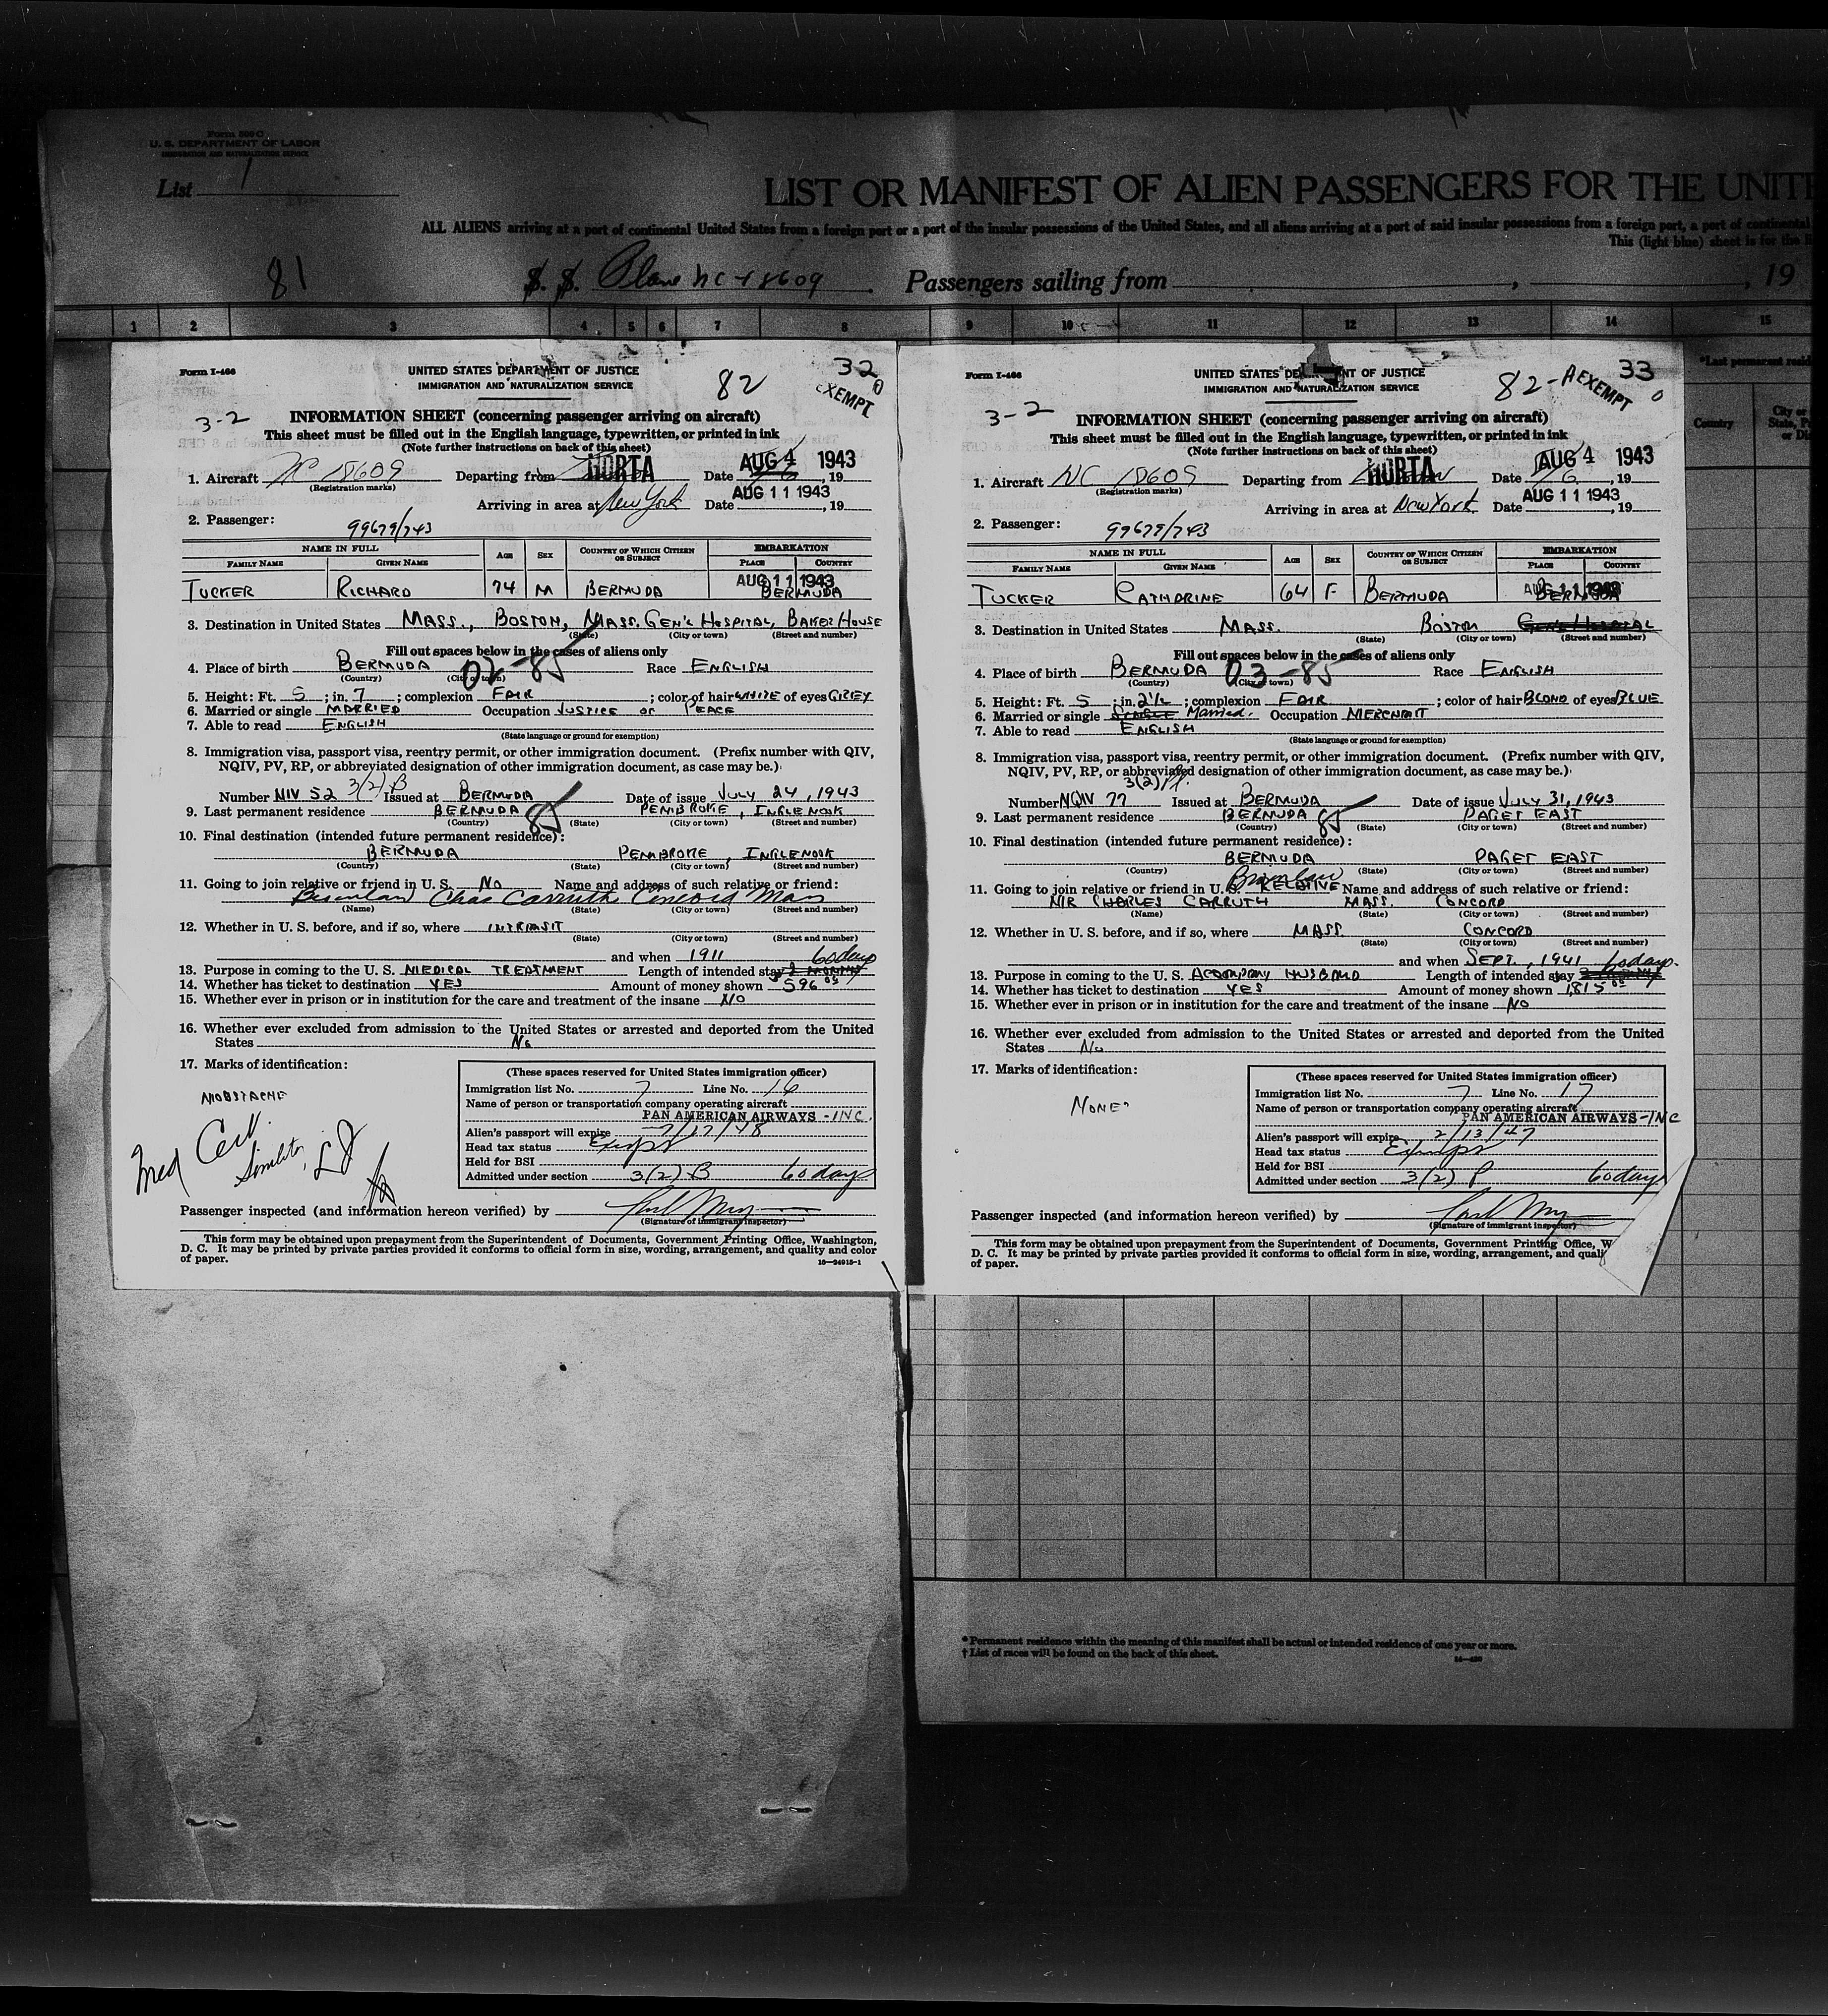 Form 500 C
U. S. DEPARTMENT OF LABOR
IMMIGRATION AND NATURALIZATION SERVICE
List 1
LIST OR MANIFEST OF ALIEN PASSENGERS FOR THE UNITE
ALL ALIENS arriving at a port of continental United States from a foreign port or a port of the insular possessions of the United States, and all aliens arriving at a port of said insular possessions from a foreign port, a port of continental
This (light blue) sheet is for the
81
S. S. Plane NC 18609 Passengers sailing from , , 19
1 2 3 4 5 6 7 8 9 10 11 12 13 14 15
*Last permanent resid
Country
City or
State, P
or Di
Form I-466
UNITED STATES DEPARTMENT OF JUSTICE
IMMIGRATION AND NATURALIZATION SERVICE
82
32
EXEMPT
3-2
INFORMATION SHEET (concerning passenger arriving on aircraft)
This sheet must be filled out in the English language, typewritten, or printed in ink
(Note further instructions on back of this sheet)
1. Aircraft NC 18609 Departing from HORTA Date AUG 4 1943, 19
(Registration marks)
Arriving in area at New York Date AUG 11 1943, 19
2. Passenger: 99679/743
NAME IN FULL AGE SEX COUNTRY OF WHICH CITIZEN OR SUBJECT EMBARKATION
FAMILY NAME GIVEN NAME PLACE COUNTRY
TUCKER RICHARD 74 M BERMUDA AUG 11 1943 BERMUDA
3. Destination in United States MASS., BOSTON, MASS. GEN'L HOSPITAL, BAKER HOUSE
(State) (City or town) (Street and number)
Fill out spaces below in the cases of aliens only
4. Place of birth BERMUDA 02-85 Race ENGLISH
(Country) (City or town)
5. Height: Ft. 5; in. 7; complexion FAIR; color of hair WHITE of eyes GREY
6. Married or single MARRIED Occupation JUSTICE OF PEACE
7. Able to read ENGLISH
(State language or ground for exemption)
8. Immigration visa, passport visa, reentry permit, or other immigration document. (Prefix number with QIV,
NQIV, PV, RP, or abbreviated designation of other immigration document, as case may be.)
Number NIV 52 3(2) B Issued at BERMUDA Date of issue JULY 24, 1943
9. Last permanent residence BERMUDA 85 PEMBROKE, INGLENOOK
(Country) (State) (City or town) (Street and number)
10. Final destination (intended future permanent residence):
BERMUDA PEMBROKE, INGLENOOK
(Country) (State) (City or town) (Street and number)
11. Going to join relative or friend in U. S. No Name and address of such relative or friend:
Chas Carruth Concord Mass
(Name) (State) (City or town) (Street and number)
12. Whether in U. S. before, and if so, where INTRANSIT
(State) (City or town) (Street and number)
and when 1911
60 days
13. Purpose in coming to the U. S. MEDICAL TREATMENT Length of intended stay 2 MONTHS
14. Whether has ticket to destination YES Amount of money shown $596
15. Whether ever in prison or in institution for the care and treatment of the insane NO
16. Whether ever excluded from admission to the United States or arrested and deported from the United
States No
17. Marks of identification:
MOUSTACHE
Med Cert.
(These spaces reserved for United States immigration officer)
Immigration list No. 7 Line No. 16
Name of person or transportation company operating aircraft
PAN AMERICAN AIRWAYS - INC.
Alien's passport will expire 7/17/48
Head tax status Exempt
Held for BSI
Admitted under section 3(2) B 60 days
Passenger inspected (and information hereon verified) by
(Signature of immigrant inspector)
This form may be obtained upon prepayment from the Superintendent of Documents, Government Printing Office, Washington,
D. C. It may be printed by private parties provided it conforms to official form in size, wording, arrangement, and quality and color
of paper. 16—24915-1
Form I-466
UNITED STATES DEPARTMENT OF JUSTICE
IMMIGRATION AND NATURALIZATION SERVICE
82-A
33
EXEMPT
3-2
INFORMATION SHEET (concerning passenger arriving on aircraft)
This sheet must be filled out in the English language, typewritten, or printed in ink
(Note further instructions on back of this sheet)
1. Aircraft NC 18609 Departing from HORTA Date AUG 4 1943, 19
(Registration marks)
Arriving in area at New York Date AUG 11 1943, 19
2. Passenger: 99679/743
NAME IN FULL AGE SEX COUNTRY OF WHICH CITIZEN OR SUBJECT EMBARKATION
FAMILY NAME GIVEN NAME PLACE COUNTRY
TUCKER CATHARINE 64 F BERMUDA AUG 11 1943 BERMUDA
3. Destination in United States MASS. BOSTON GEN'L HOSPITAL
(State) (City or town) (Street and number)
Fill out spaces below in the cases of aliens only
4. Place of birth BERMUDA 03-85 Race ENGLISH
(Country) (City or town)
5. Height: Ft. 5; in. 2½; complexion FAIR; color of hair BLOND of eyes BLUE
6. Married or single SINGLE Married. Occupation MERCHANT
7. Able to read ENGLISH
(State language or ground for exemption)
8. Immigration visa, passport visa, reentry permit, or other immigration document. (Prefix number with QIV,
NQIV, PV, RP, or abbreviated designation of other immigration document, as case may be.)
3(2)
Number NQIV 77 Issued at BERMUDA Date of issue JULY 31, 1943
9. Last permanent residence BERMUDA 85 PAGET EAST
(Country) (State) (City or town) (Street and number)
10. Final destination (intended future permanent residence):
BERMUDA PAGET EAST
(Country) (State) (City or town) (Street and number)
11. Going to join relative or friend in U. S. RELATIVE Name and address of such relative or friend:
MR CHARLES CARRUTH MASS. CONCORD
(Name) (State) (City or town) (Street and number)
12. Whether in U. S. before, and if so, where MASS. CONCORD
(State) (City or town) (Street and number)
and when SEPT., 1941 60 days.
13. Purpose in coming to the U. S. ACOMPANY HUSBAND Length of intended stay
14. Whether has ticket to destination YES Amount of money shown 1815
15. Whether ever in prison or in institution for the care and treatment of the insane NO
16. Whether ever excluded from admission to the United States or arrested and deported from the United
States No
17. Marks of identification:
NONE
(These spaces reserved for United States immigration officer)
Immigration list No. 7 Line No. 17
Name of person or transportation company operating aircraft
PAN AMERICAN AIRWAYS - INC
Alien's passport will expire 2/13/47
Head tax status Exempt
Held for BSI
Admitted under section 3(2) P 60 days
Passenger inspected (and information hereon verified) by
(Signature of immigrant inspector)
This form may be obtained upon prepayment from the Superintendent of Documents, Government Printing Office, W
D. C. It may be printed by private parties provided it conforms to official form in size, wording, arrangement, and quali
of paper.
*Permanent residence within the meaning of this manifest shall be actual or intended residence of one year or more.
†List of races will be found on the back of this sheet.